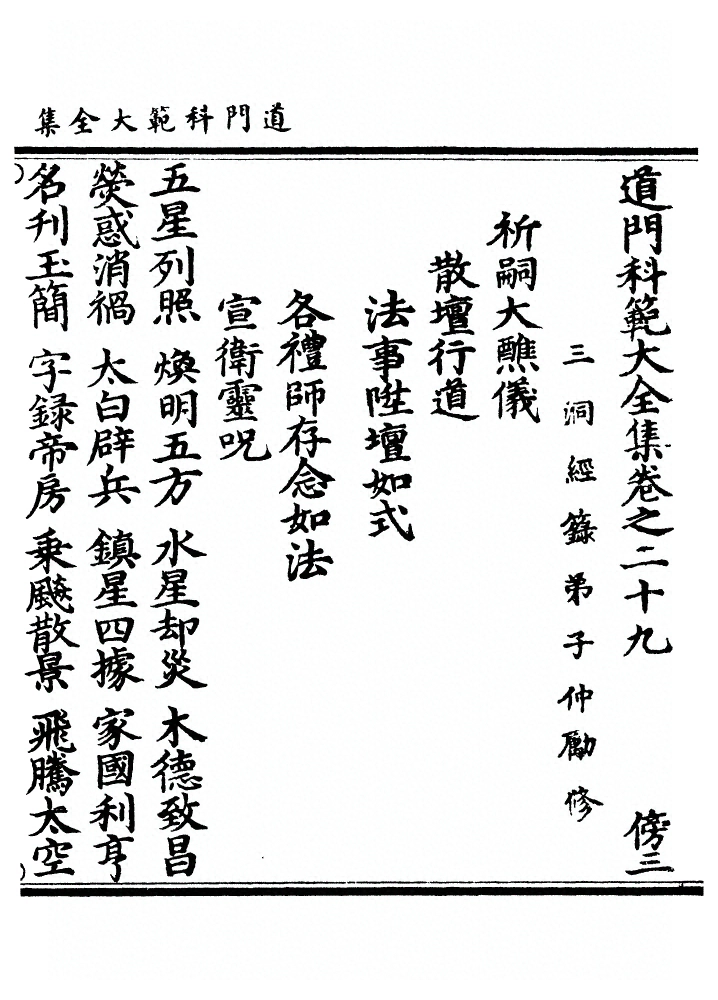 道門科範大全集
道門科範大全集卷之二十九　傍三
三洞經籙弟子仲勵修
祈嗣大醮儀
散壇行道
法事陞壇如式
各禮師存念如法
宣衛靈呪
五星列照　煥明五方　水星却災　木德致昌
熒惑消禍　太白辟兵　鎮星四據　家國利亨
名刋玉簡　字録帝房　乗飈散景　飛騰太空